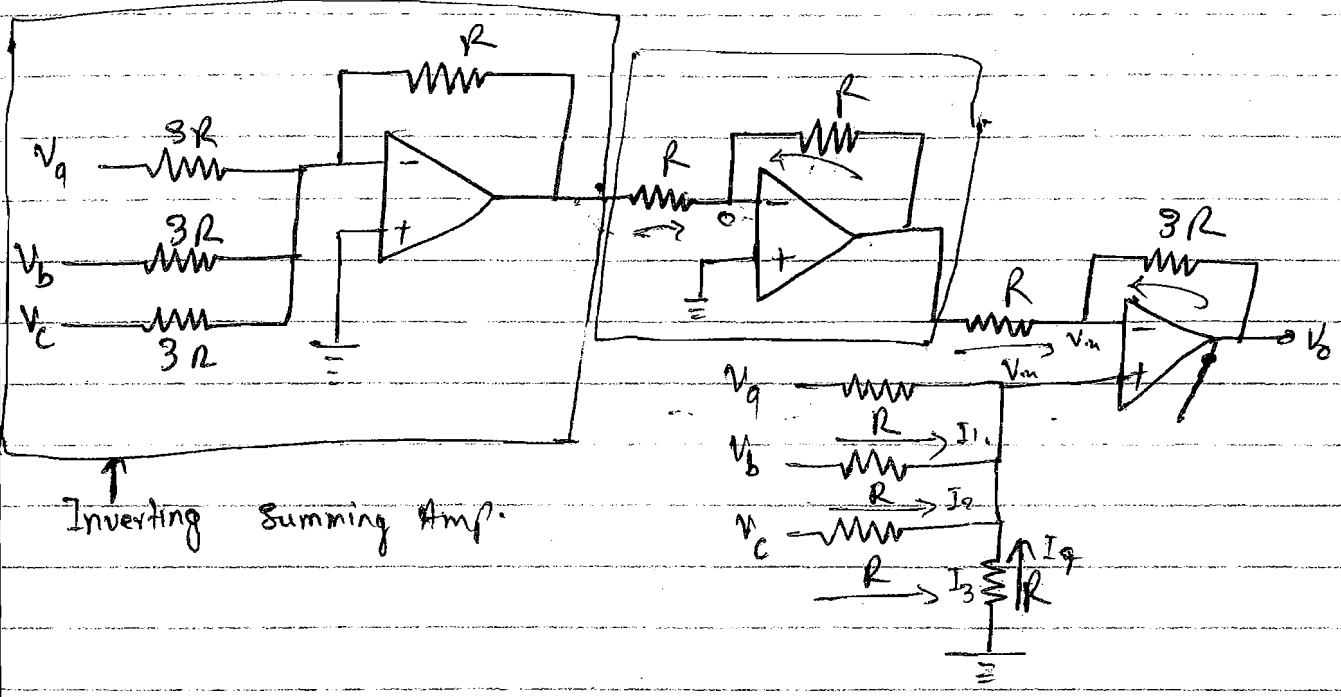 R
3R
Va
-
+
3R
Vb
Vc
3R
R
R
0
-
+
R
3R
Vm
-
+
Vo
Va
Vm
R
I1
Vb
R
I2
Vc
R
I3
R
Inverting Summing Amp.